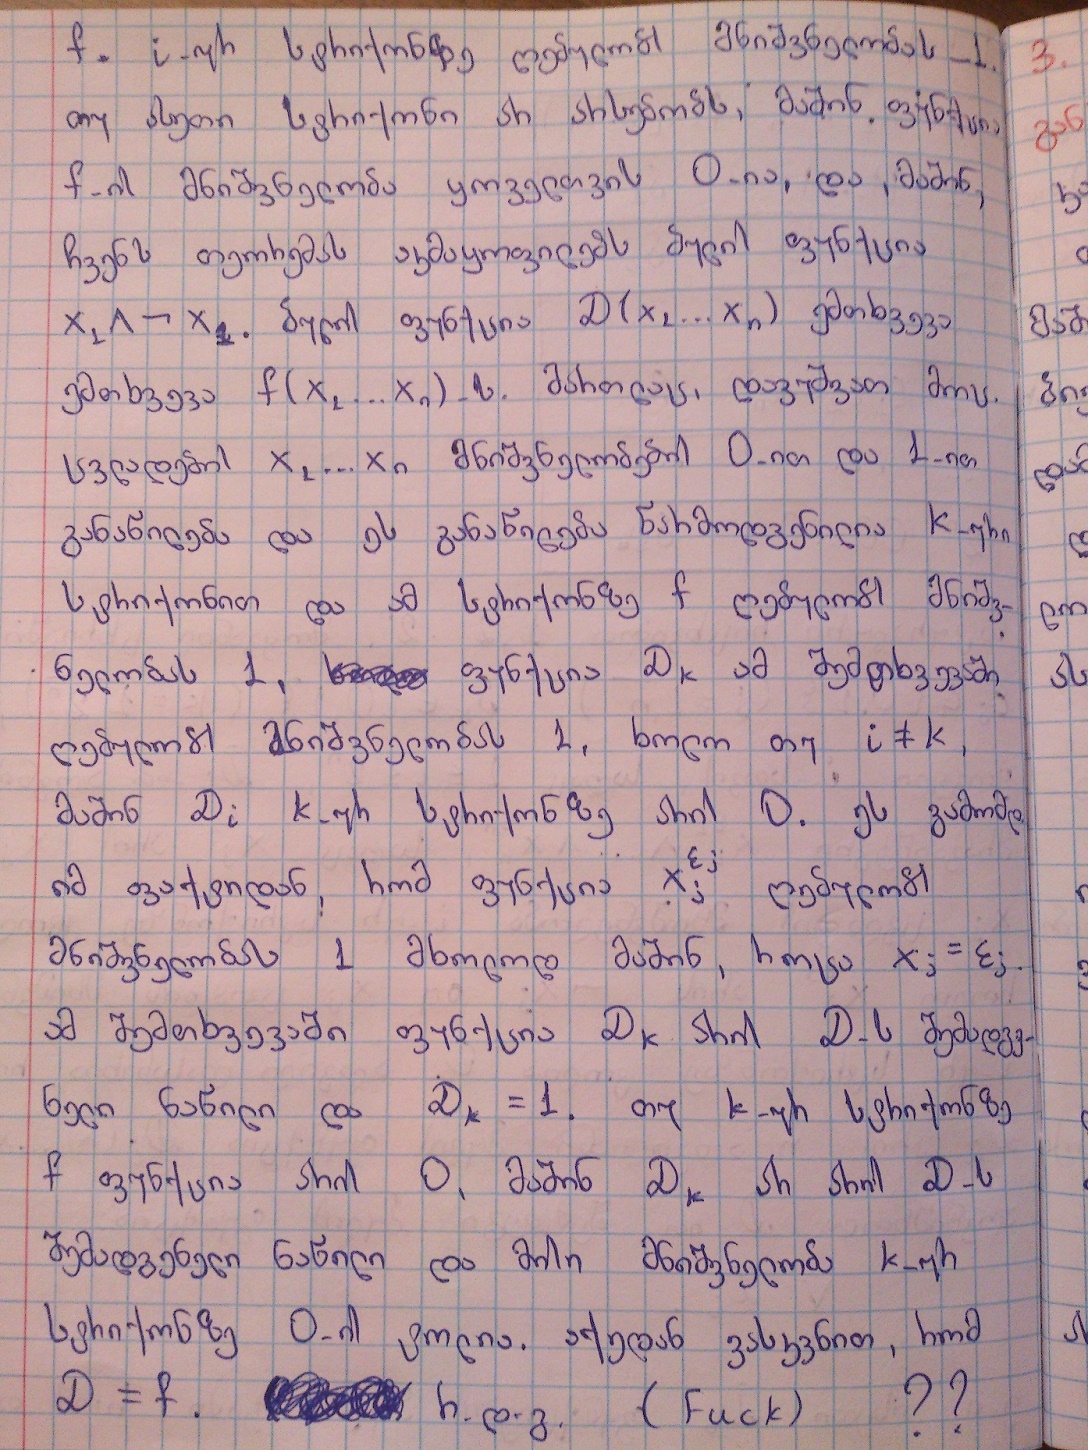 f. i-ურ სტრიქონზე ღებულობს მნიშვნელობას -1.
თუ ასეთი სტრიქონი არ არსებობს, მაშინ ფუნქცია
f-ის მნიშვნელობა ყოველთვის 0-ია, და, მაშინ,
ჩვენს თეორემას აკმაყოფილებს ბულის ფუნქცია
x₁ ∧ ¬ x₁. ბულის ფუნქცია D(x₁...xₙ) ემთხვევა
ემთხვევა f(x₁...xₙ)-ს. მართლაც, დავუშვათ მოც.
ცვლადების x₁...xₙ მნიშვნელობების 0-ით და 1-ით
განაწილება და ეს განაწილება წარმოდგენილია k-ური
სტრიქონით და ამ სტრიქონზე f ღებულობს მნიშვ-
ნელობას 1, ფუნქცია Dₖ ამ შემთხვევაში
ღებულობს მნიშვნელობას 1, ხოლო თუ i ≠ k,
მაშინ Dᵢ k-ურ სტრიქონზე არის 0. ეს გამომდ
იმ ფაქტიდან, რომ ფუნქცია xⱼ^εⱼ ღებულობს
მნიშვნელობას 1 მხოლოდ მაშინ, როცა xⱼ = εⱼ.
ამ შემთხვევაში ფუნქცია Dₖ არის D-ს შემადგე-
ნელი ნაწილი და Dₖ = 1. თუ k-ურ სტრიქონზე
f ფუნქცია არის 0, მაშინ Dₖ არ არის D-ს
შემადგენელი ნაწილი და მისი მნიშვნელობა k-ურ
სტრიქონზე 0-ის ტოლია. აქედან ვასკვნით, რომ
D = f. რ.დ.გ. (Fuck) ??
3.